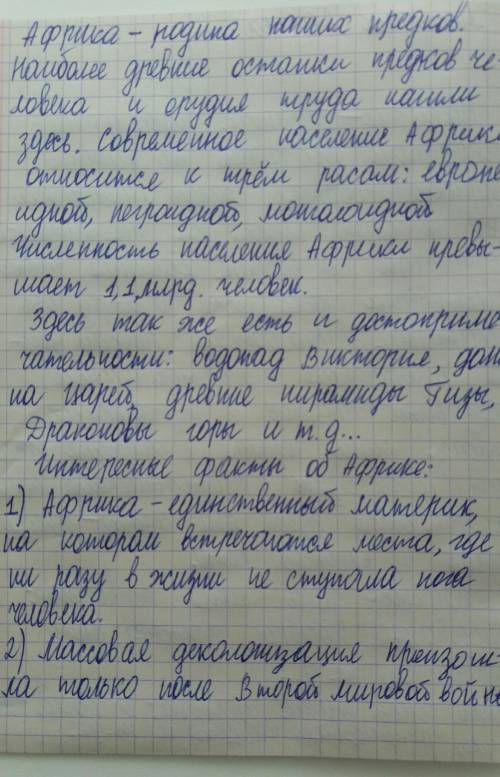 Африка – родина наших предков.
Наиболее древние останки предков че-
ловека и орудия труда нашли
здесь. Современное население Африки
относится к трём расам: европе
идной, негроидной, монголоидной
Численность населения Африки превы-
шает 1,1 млрд. человек.
Здесь так же есть и достоприме
чательности: водопад Виктория, доли
на царей, древние пирамиды Гизы,
Драконовы горы и т.д...
Интересные факты об Африке:
1) Африка – единственный материк,
на котором встречаются места, где
ни разу в жизни не ступала нога
человека.
2) Массовая деколонизация произош-
ла только после Второй мировой войны